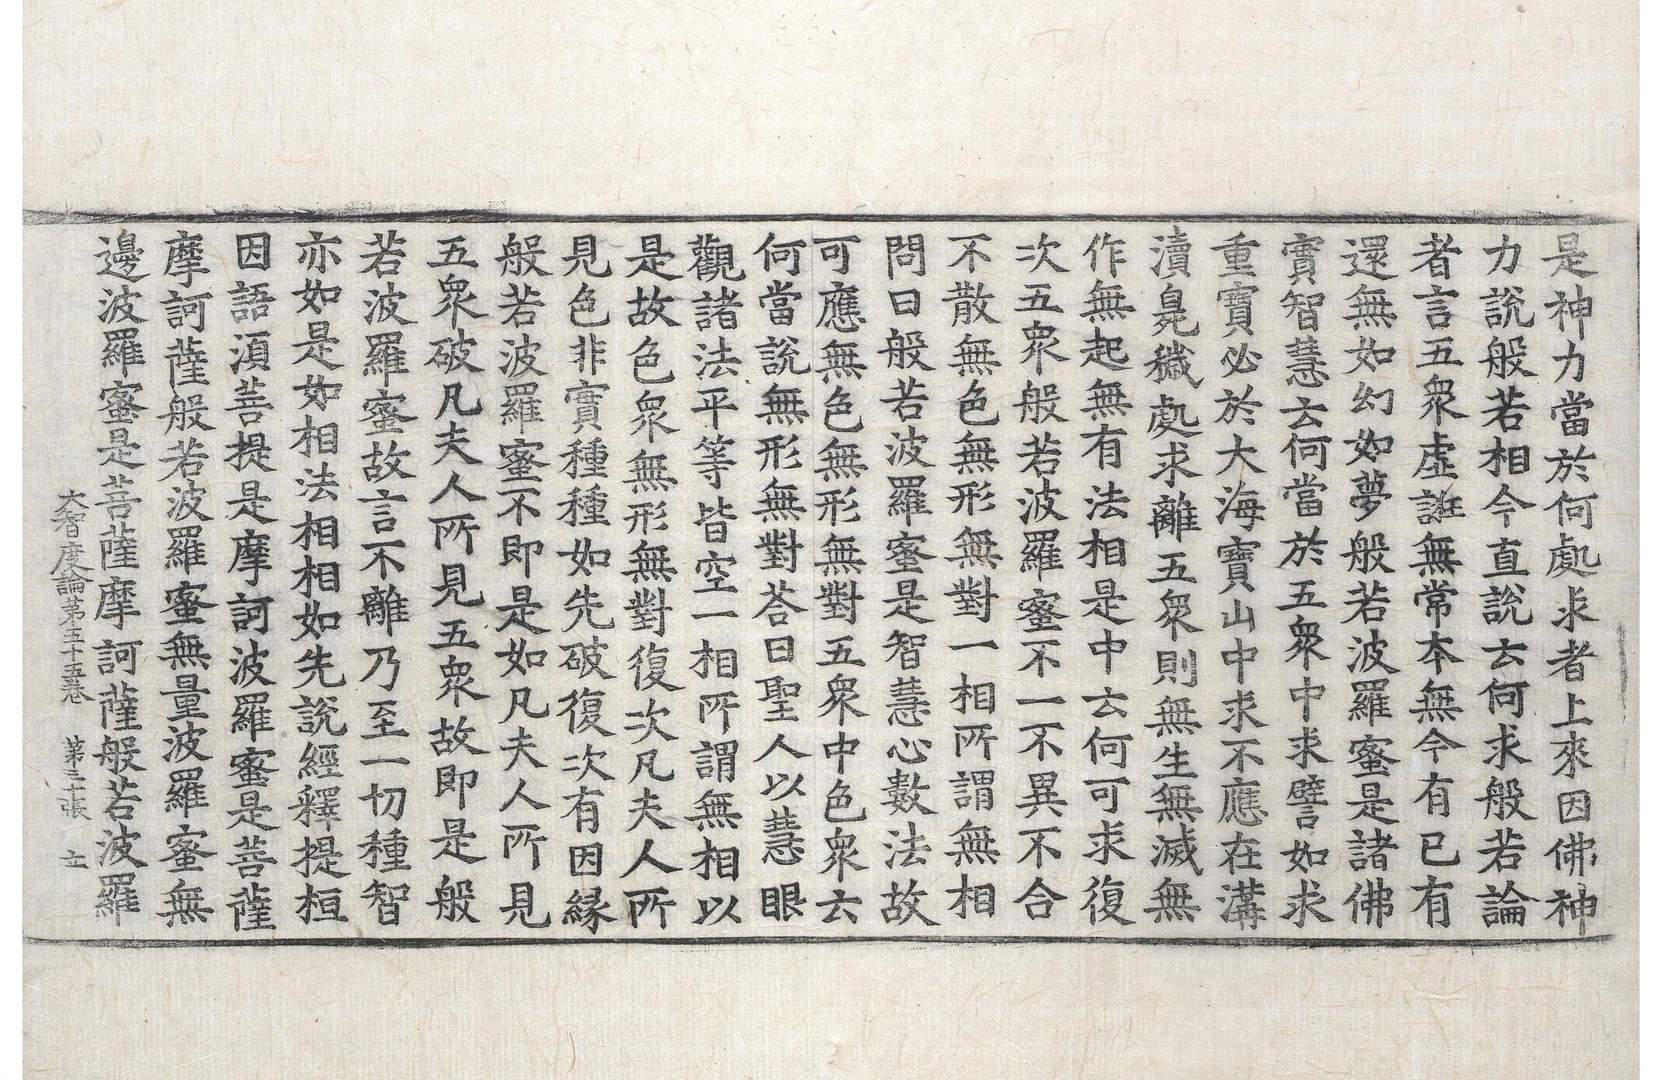 是神力當於何處求者上來因佛神
力說般若相今直說云何求般若論
者言五衆虛誑無常本無今有已有
還無如幻如夢般若波羅蜜是諸佛
實智慧云何當於五衆中求譬如求
重寶必於大海寶山中求不應在溝
瀆臭穢處求離五衆則無生無滅無
作無起無有法相是中云何可求復
次五衆般若波羅蜜不一不異不合
不散無色無形無對一相所謂無相
問曰般若波羅蜜是智慧心數法故
可應無色無形無對五衆中色衆云
何當說無形無對荅曰聖人以慧眼
觀諸法平等皆空一相所謂無相以
是故色衆無形無對復次凡夫人所
見色非實種種如先破復次有因緣
般若波羅蜜不即是如凡夫人所見
五衆破凡夫人所見五衆故即是般
若波羅蜜故言不離乃至一切種智
亦如是如相法相相如先說經釋提桓
因語湏菩提是摩訶波羅蜜是菩薩
摩訶薩般若波羅蜜無量波羅蜜無
邊波羅蜜是菩薩摩訶薩般若波羅
大智度論第五十五卷 第三十張 立